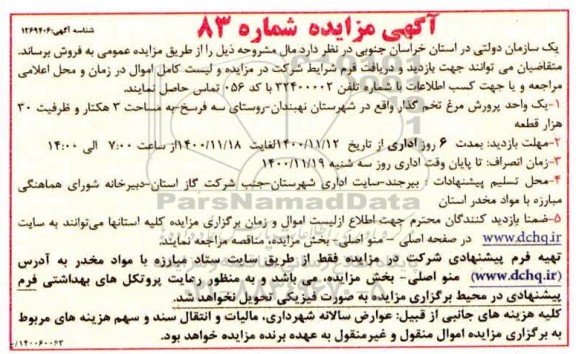 آگهی مزایده شماره ۸۳
شناسه آگهی:۱۲۶۹۴۰۶
یک سازمان دولتی در استان خراسان جنوبی در نظر دارد مال مشروحه ذیل را از طریق مزایده عمومی به فروش برساند.
متقاضیان می توانند جهت بازدید و دریافت فرم شرایط شرکت در مزایده و لیست کامل اموال در زمان و محل اعلامی
مراجعه و یا جهت کسب اطلاعات با شماره تلفن ۳۲۴۰۰۰۰۲ با کد ۰۵۶ تماس حاصل نمایند.
۱-یک واحد پرورش مرغ تخم گذار واقع در شهرستان نهبندان-روستای سه فرسخ-به مساحت ۳ هکتار و ظرفیت ۳۰
هزار قطعه
۲-مهلت بازدید: بمدت ۶ روز اداری از تاریخ ۱۴۰۰/۱۱/۱۲لغایت ۱۴۰۰/۱۱/۱۸از ساعت ۷:۰۰ الی ۱۴:۰۰
۳-زمان انصراف: تا پایان وقت اداری روز سه شنبه ۱۴۰۰/۱۱/۱۹
۴-محل تسلیم پیشنهادات : بیرجند-سایت اداری شهرستان-جنب شرکت گاز استان-دبیرخانه شورای هماهنگی
مبارزه با مواد مخدر استان
ParsNamadData
۵-ضمنا بازدید کنندگان محترم جهت اطلاع ازلیست اموال و زمان برگزاری مزایده کلیه استانها می‌توانند به سایت
www.dchq.ir در صفحه اصلی - منو اصلی- بخش مزایده، مناقصه مراجعه نمایند.
تهیه فرم پیشنهادی شرکت در مزایده فقط از طریق سایت ستاد مبارزه با مواد مخدر به آدرس
(www.dchq.ir) منو اصلی- بخش مزایده، می باشد و به منظور رعایت پروتکل های بهداشتی فرم
پیشنهادی در محیط برگزاری مزایده به صورت فیزیکی تحویل نخواهد شد.
کلیه هزینه های جانبی از قبیل: عوارض سالانه شهرداری، مالیات و انتقال سند و سهم هزینه های مربوط
به برگزاری مزایده اموال منقول و غیرمنقول به عهده برنده مزایده خواهد بود.